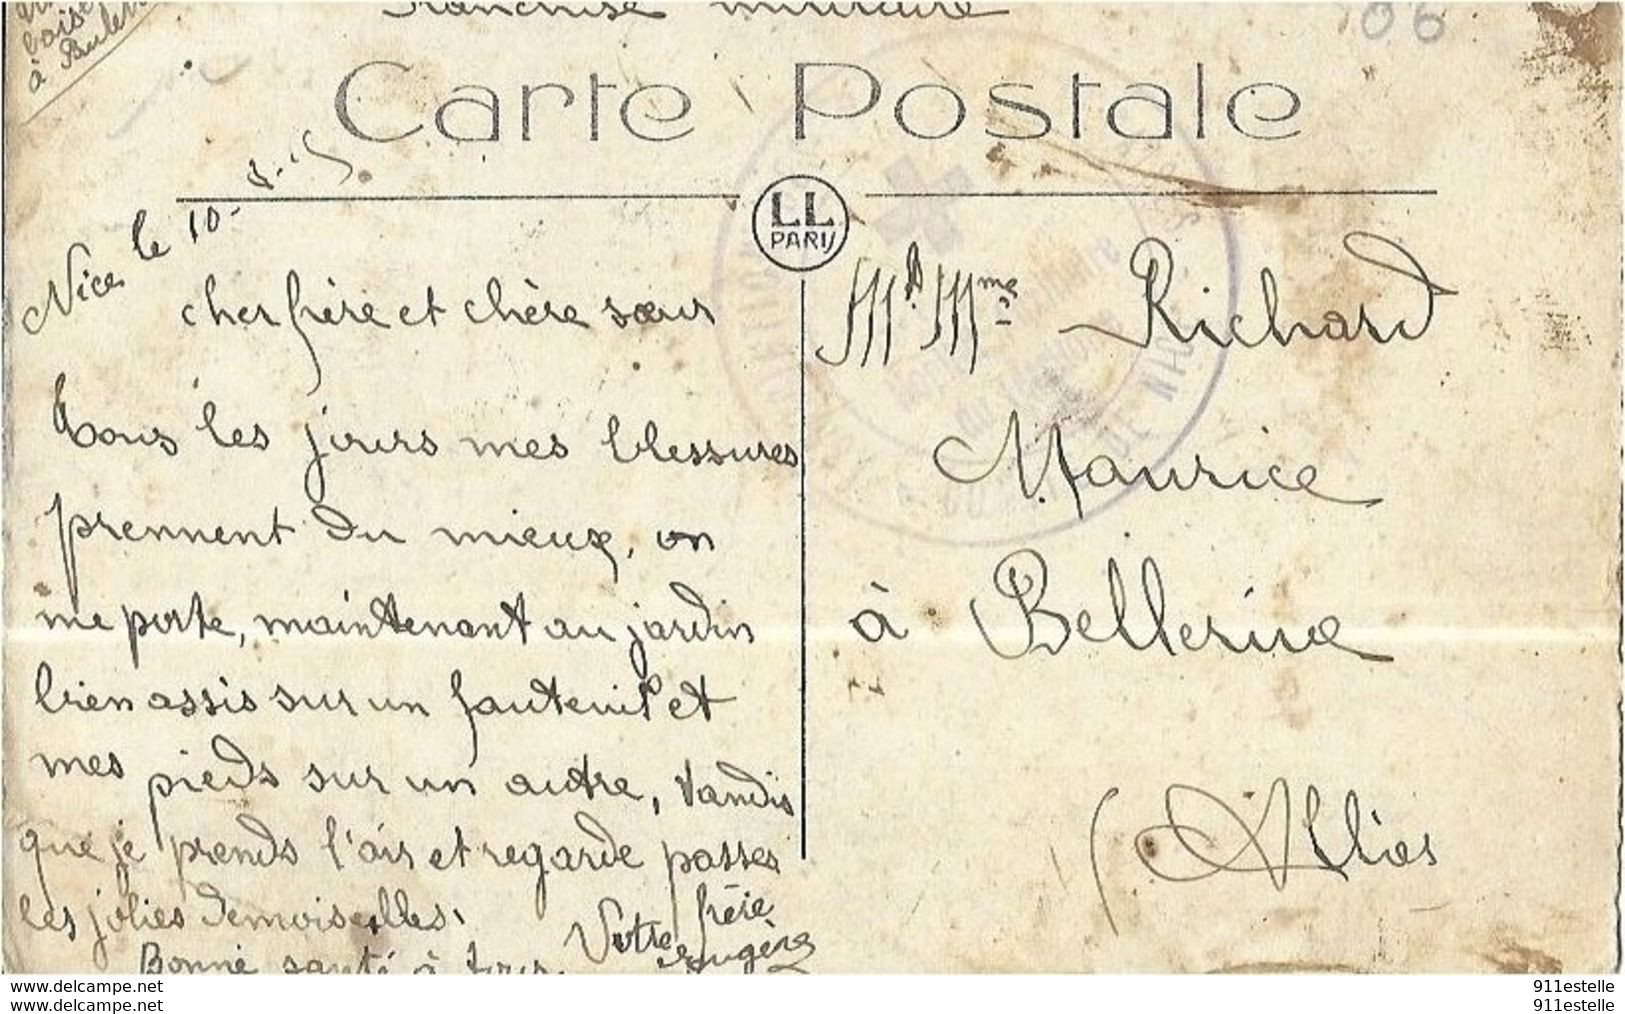 baise
à
Franchise militaire
06
Carte Postale
LL
PARIS
Nice le 10-8-15
cher frère et chère sœur
Tous les jours mes blessures
prennent du mieux, on
me porte, maintenant au jardin
bien assis sur un fauteuil et
mes pieds sur un autre, tandis
que je prends l'air et regarde passer
les jolies demoiselles.
Bonne santé à tous.
Votre frère
Eugène
M & Mme Richard
Maurice
à Bellerive
(Allier
DE NICE
www.delcampe.net
www.delcampe.net
911estelle
911estelle